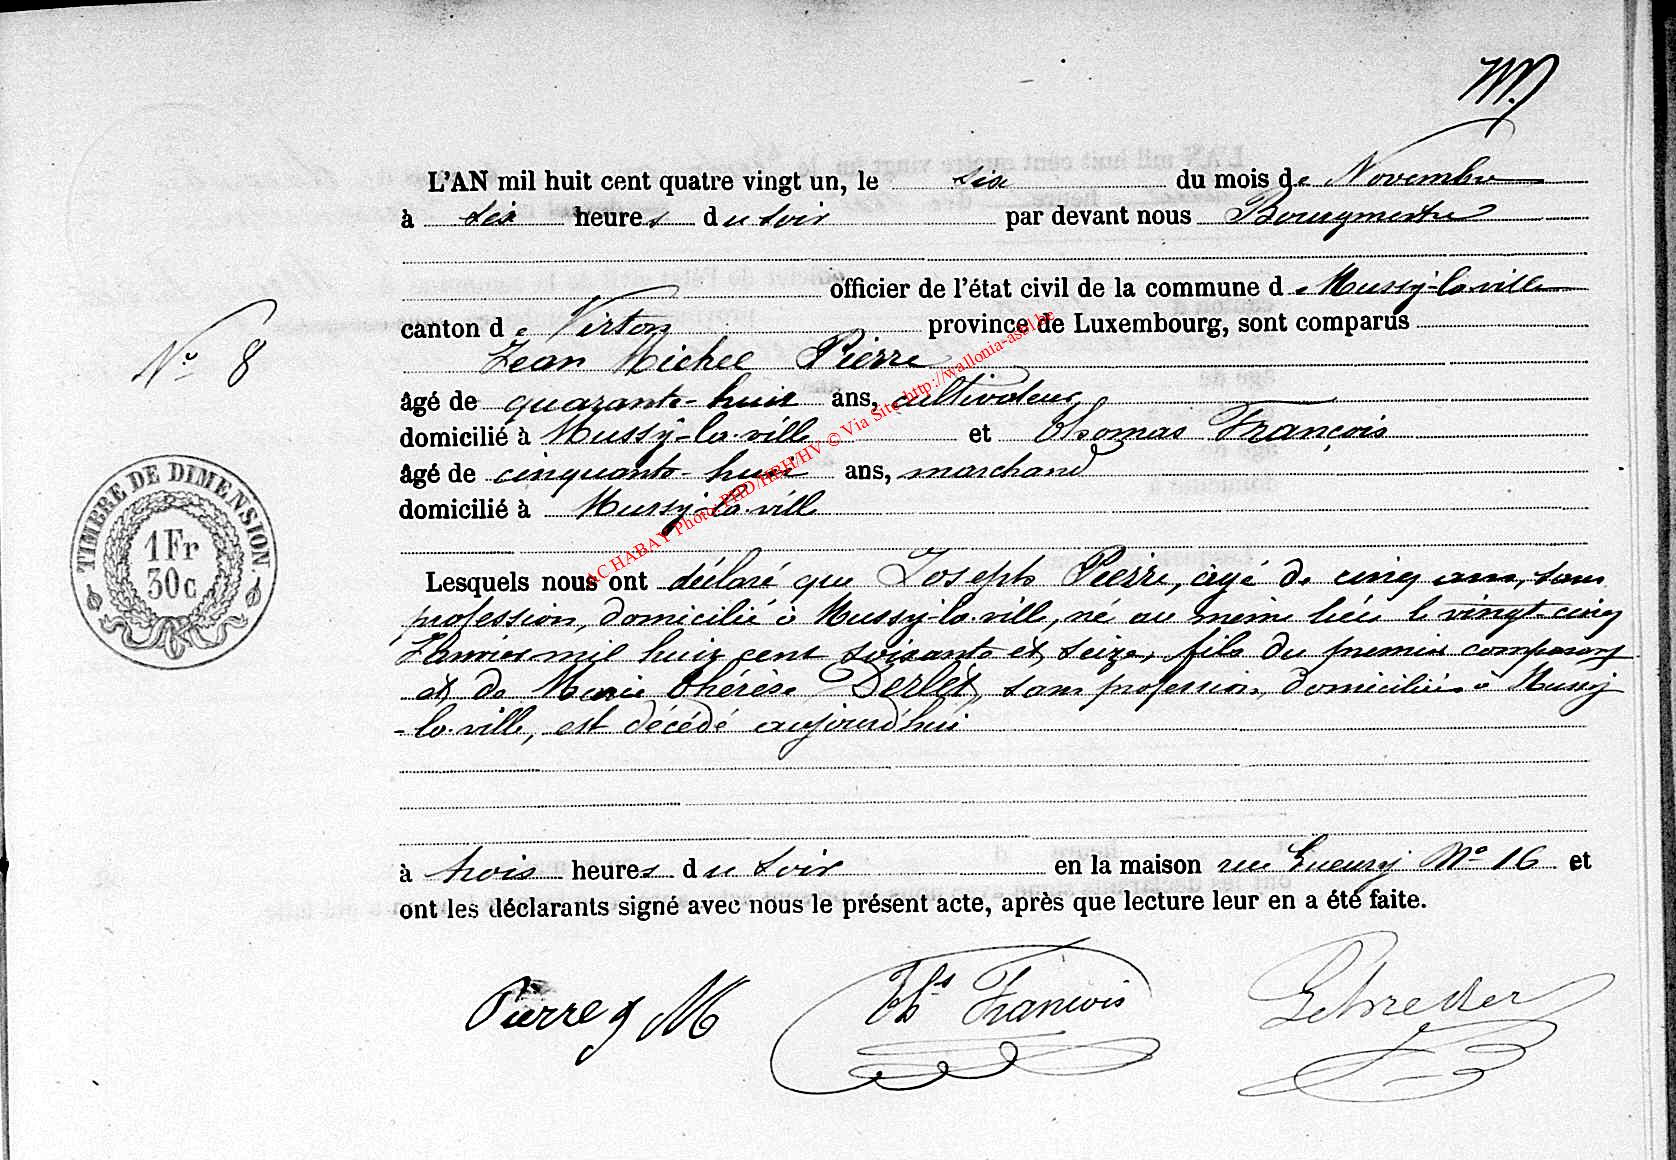 L'AN mil huit cent quatre vingt un, le six du mois de Novembre
à six heures du soir par devant nous Bourgmestre
officier de l'état civil de la commune de Mussy-la-ville
canton de Virton province de Luxembourg, sont comparus
Jean Michel Pierre
âgé de quarante-huit ans, cultivateur
domicilié à Mussy-la-ville et Thomas François
âgé de cinquante-huit ans, marchand
domicilié à Mussy-la-ville
Lesquels nous ont déclaré que Joseph Pierre, âgé de cinq ans, sans
profession, domicilié à Mussy-la-ville, né au même lieu le vingt-cinq
Janvier mil huit cent soixante et seize, fils du premier comparant
et de Marie Thérèse Derlet, sans profession, domiciliée à Mussy
-la-ville, est décédé aujourd'hui
à trois heures du soir en la maison rue No 16 et
ont les déclarants signé avec nous le présent acte, après que lecture leur en a été faite.
No 8
TIMBRE DE DIMENSION
1 Fr
30 c
Pierre J M Ths François
AC HABAY Photo PHD/HBH/HV © Via Site http://wallonia-asbl.be